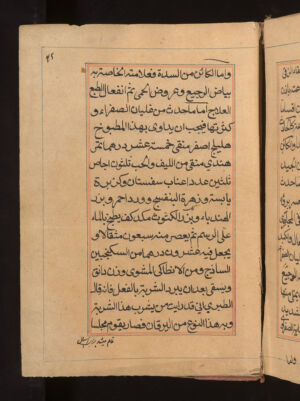 واما الكائن من السدة فعلامته الخاصة به
بياض الرجيع وعروض الحمى ثم انفعال الطبع
العلاج اما ما حدث من غليان الصفراء و
كثرتها فيجب ان يداوى بهذا المطبوخ
هليلج اصفر منقى خمسة عشر درهم تمر
هندى منقى من الليف والحب ثلثون اجاص
ثلثين عددا عناب سفستان وكزبرة
يابسة وزهرة البنفسج وورد احمر وبزر
الهندباء وبزر الكشوث مكد كف يطبخ بالماء
على الرسم ثم يعصر منه سبعون مثقالا و
يجعل فيه عشرون درهما من السكنجبين
الساذج ومن الانطاكى المشوى وزن دانق
ويسقى بعد ان يبرد الشربة بالفعل فان قال
الطبرى انى قد رايت من يشرب هذا الشربة
وبه هذا النوع من اليرقان فصار يقوم مجلسا